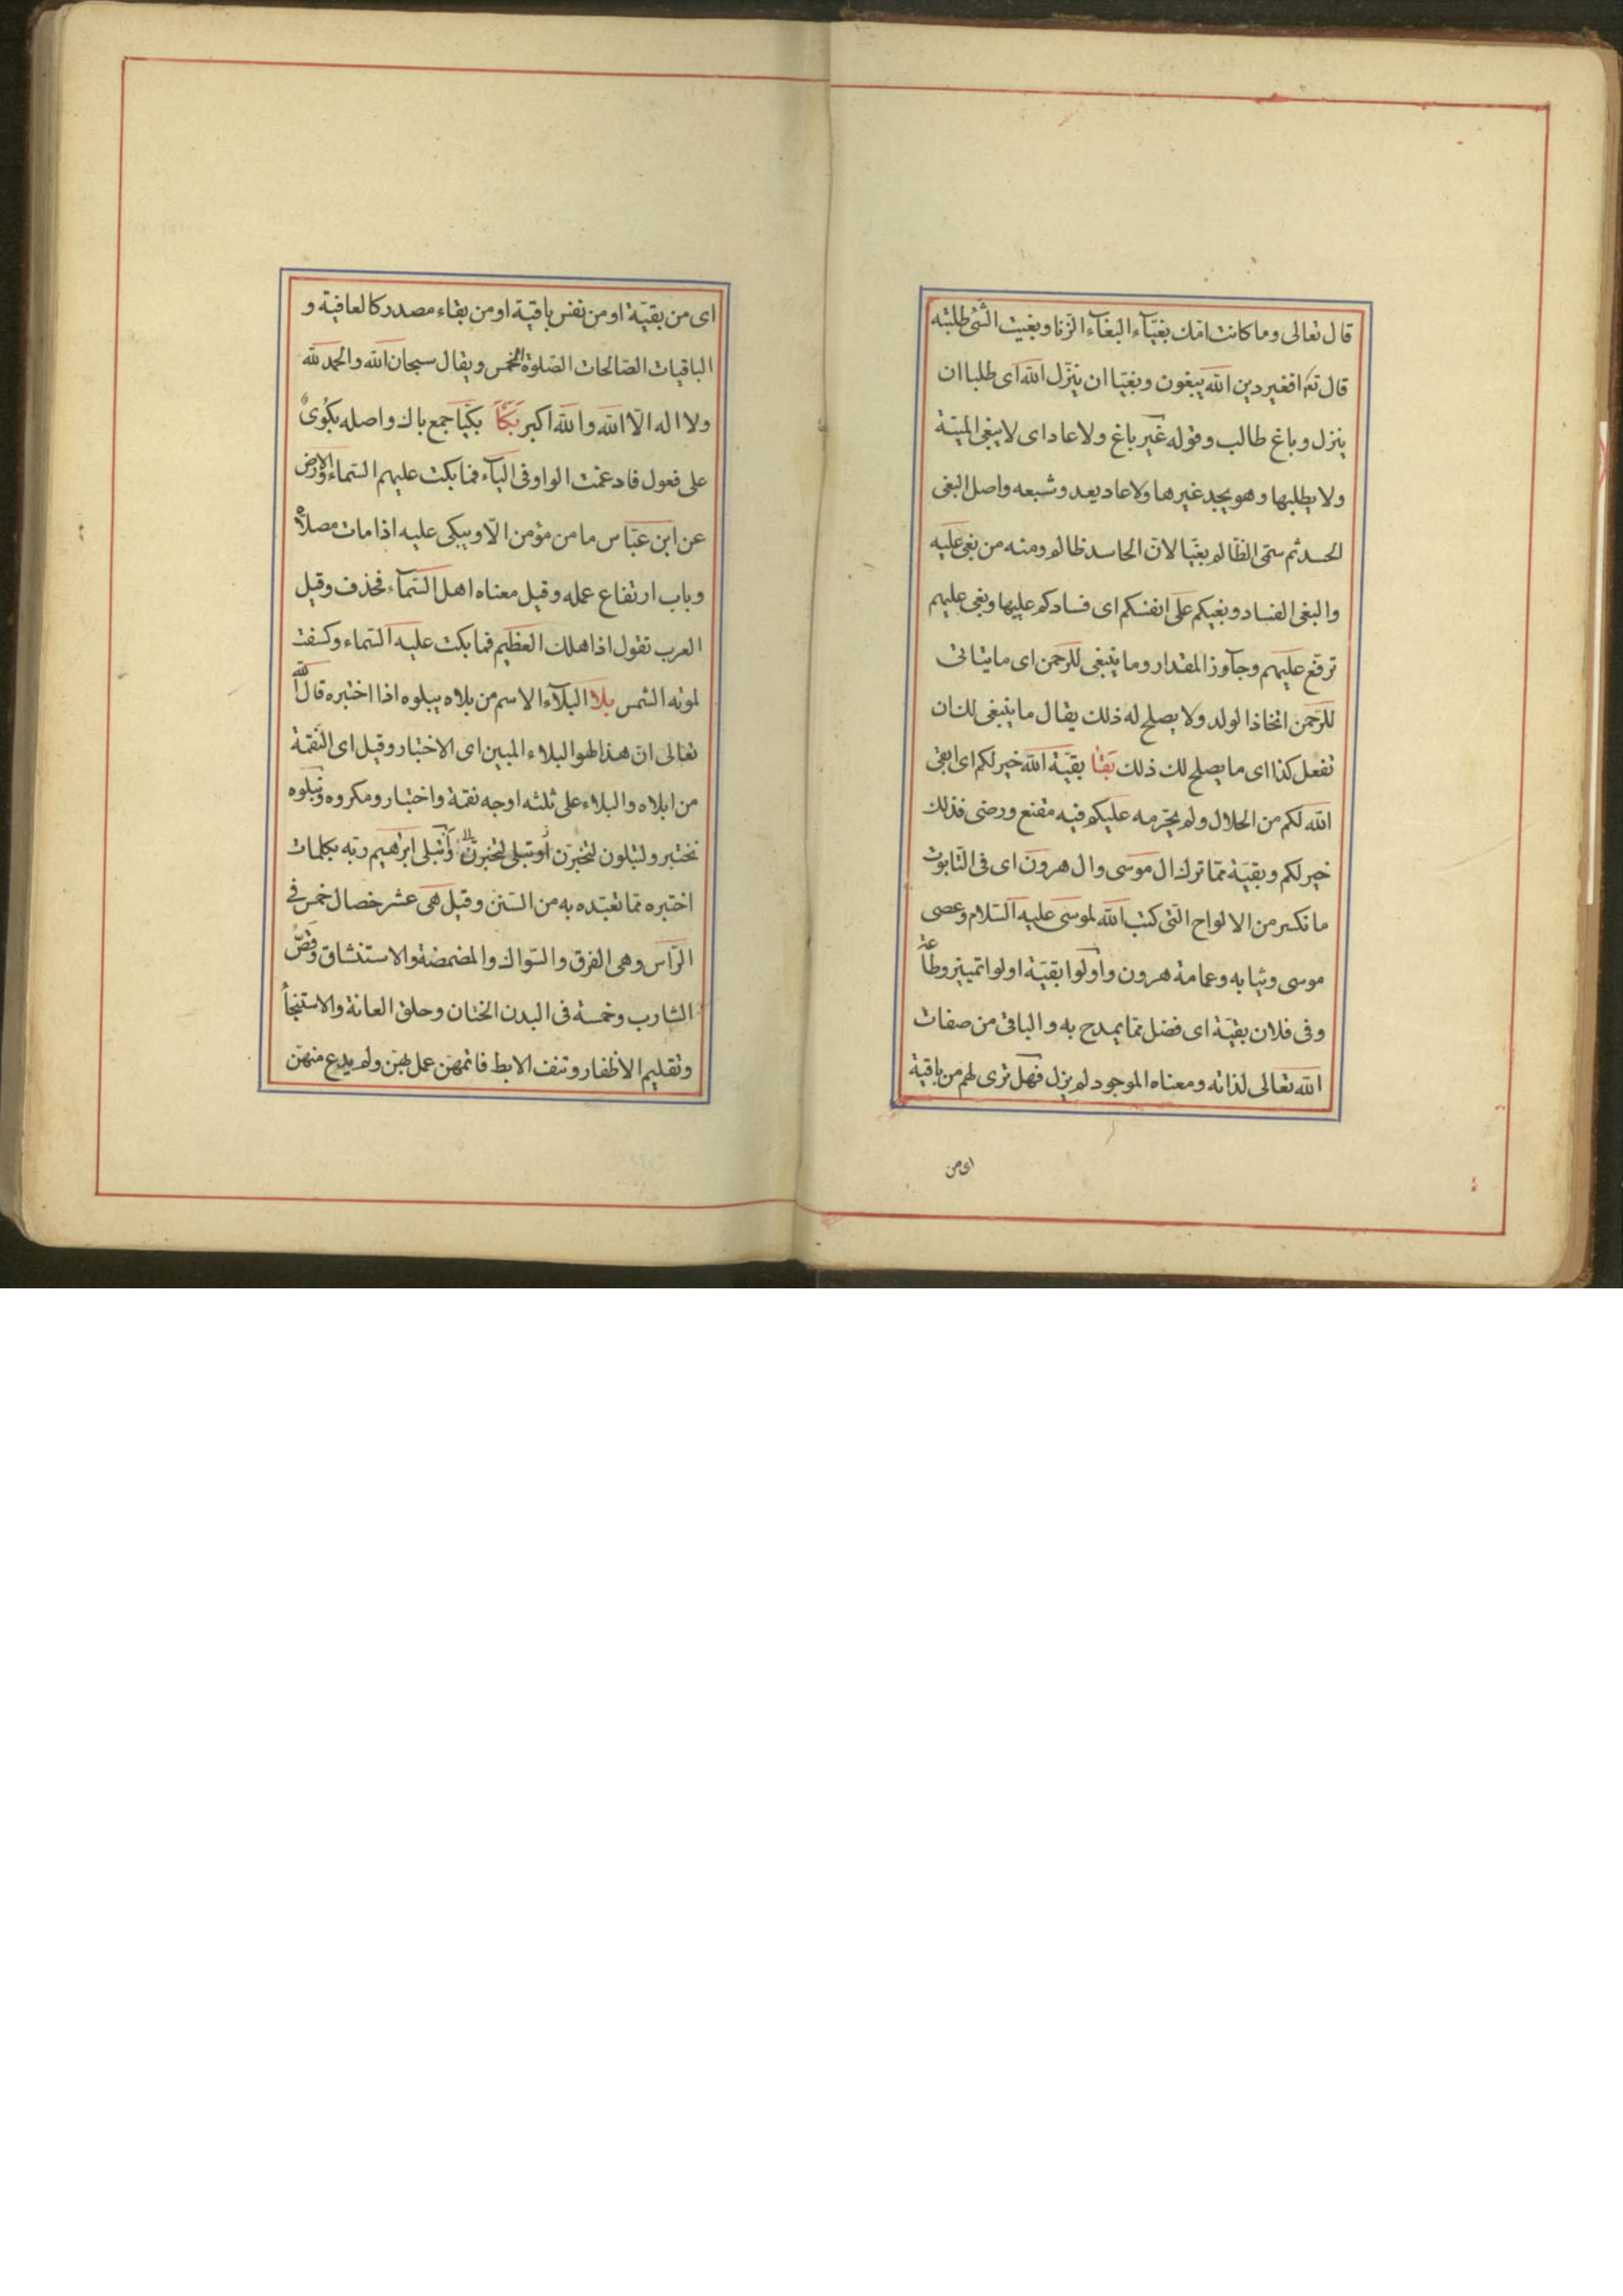 قال تعالى وما كانت امّك بغيّآء البغآء الزنا وبغيت الشئ طلبته
قال تع افغير دين الله يبغون وبغيّا ان ينزّل الله اى طلبا ان
ينزل وباغ طالب وقوله غير باغ ولا عاد اى لا يبغى الميتة
ولا يطلبها وهو يجد غيرها ولا عاد يعد وشبعه واصل البغى
الحسد ثم سمّى الظّالم بغيّا لانّ الحاسد ظالم ومنه من بغى عليه
والبغى الفساد وبغيكم على انفسكم اى فسادكم عليها وبغى عليهم
ترفع عليهم وجآوز المقدار وما ينبغى للرّحمن اى ما يتاتى
للرّحمن اتخاذ الولد ولا يصلح له ذلك يقال ما ينبغى لك ان
تفعل كذا اى ما يصلح لك ذلك بقا بقيّة الله خير لكم اى ابقى
الله لكم من الحلال ولم يحرّمه عليكم فيه مقنع ورضى فذلك
خير لكم وبقيّة ممّا ترك ال موسى وال هرون اى فى التّابوت
ما تكسر من الالواح الّتى كتب الله لموسى عليه السّلام وعصى
موسى وثيابه وعمامة هرون واولوا بقيّة اولوا تمييز وطاعة
وفى فلان بقيّة اى فضل ممّا يمدح به والباقى من صفات
الله تعالى لذاته ومعناه الموجود لم يزل فهل ترى لهم من باقية
اى من
اى من بقيّة او من نفس باقية او من بقاء مصدر كالعافية و
الباقيات الصّالحات الصّلوة الخمس ويقال سبحان الله والحمد لله
ولا اله الّا الله والله اكبر بكا بكيّا جمع باك واصله بكوى
على فعول فادغمت الواو فى اليآء فما بكت عليهم السّماء والارض
عن ابن عبّاس ما من مؤمن الّا ويبكى عليه اذا مات مصلاه
وباب ارتفاع عمله وقيل معناه اهل السّمآء فحذف وقيل
العرب تقول اذا هلك العظيم فما بكت عليه السّماء وكسفت
لموته الشمس بلا البلآء الاسم من بلاه يبلوه اذا اختبره قال الله
تعالى انّ هذا لهو البلاء المبين اى الاختبار وقيل اى النّقمة
من ابلاه والبلاء على ثلثه اوجه نقمة واختبار ومكروه ونبلوه
نختبر ولتبلون لتختبرنّ او تبلى لتختبرنّ وابتلى ابرهيم ربّه بكلمات
اختبره ممّا تعبّده به من السّنن وقيل هى عشر خصال خمس فى
الرّاس وهى الفرق والسّواك والمضمضة والاستنشاق وقصّ
الشارب وخمسة فى البدن الختان وحلق العانة والاستنجآ
وتقليم الاظفار ونتف الابط فاتمهنّ عمل بهنّ ولم يدع منهنّ